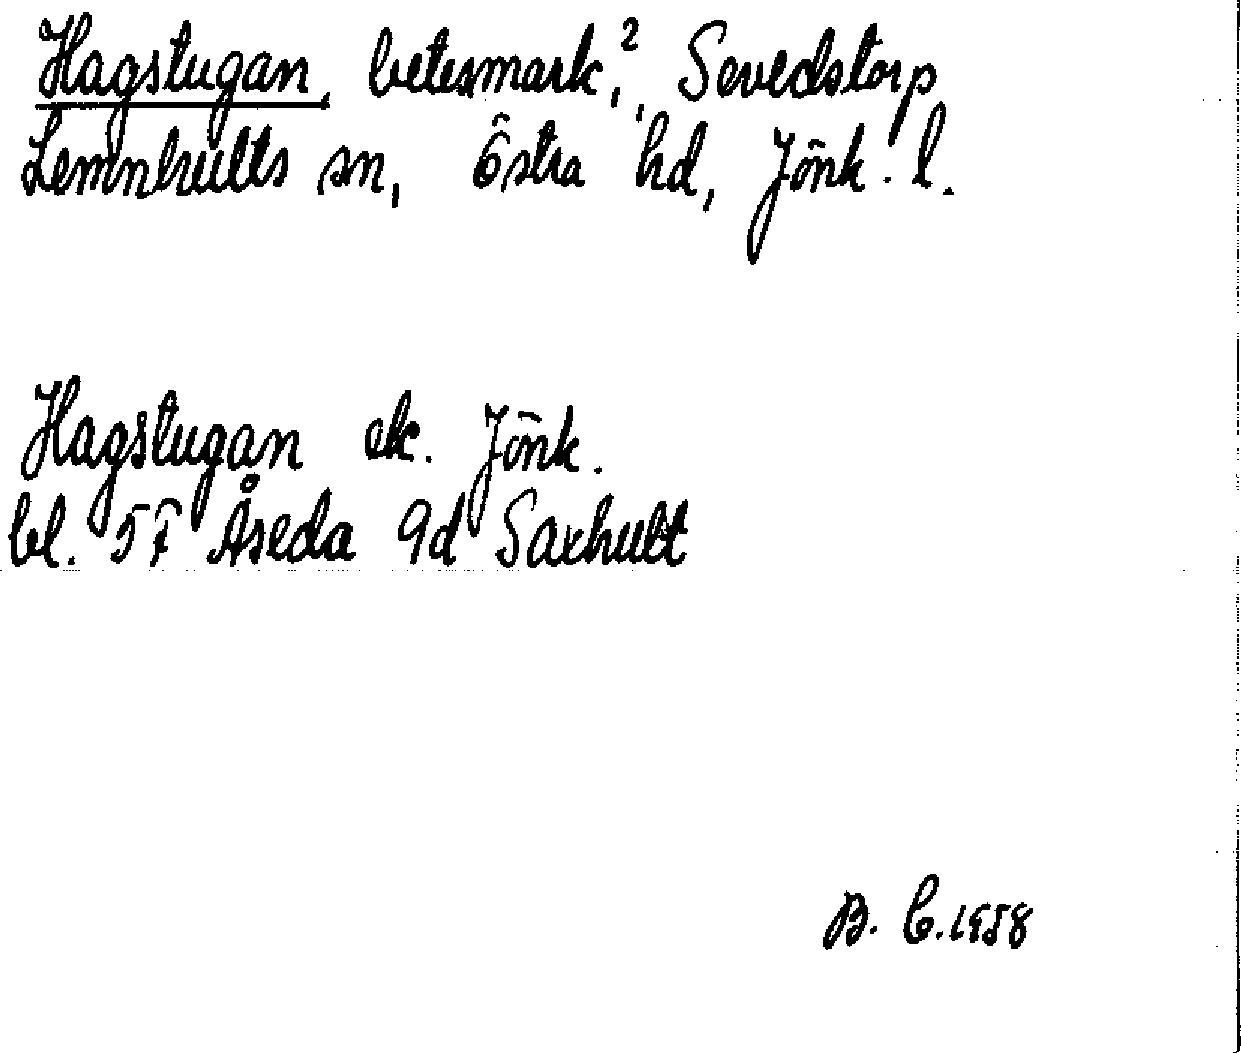 Hagstugan, betesmark,², Sevedstorp
Lemnhults sn, Östra hd, Jönk. l.
Hagstugan ek. Jönk.
bl. 5F Åseda 9d Saxhult
B. C. 1958